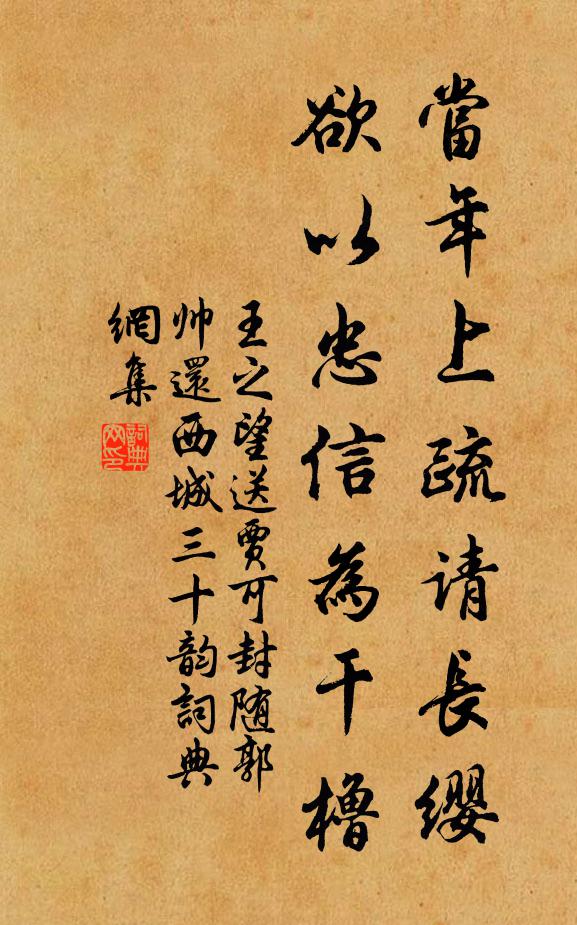 當年上疏请長缨
欲以忠信為干櫓
王之望送賈可封随郭
帅還西城三十韵詞典
網集
詞典
网印